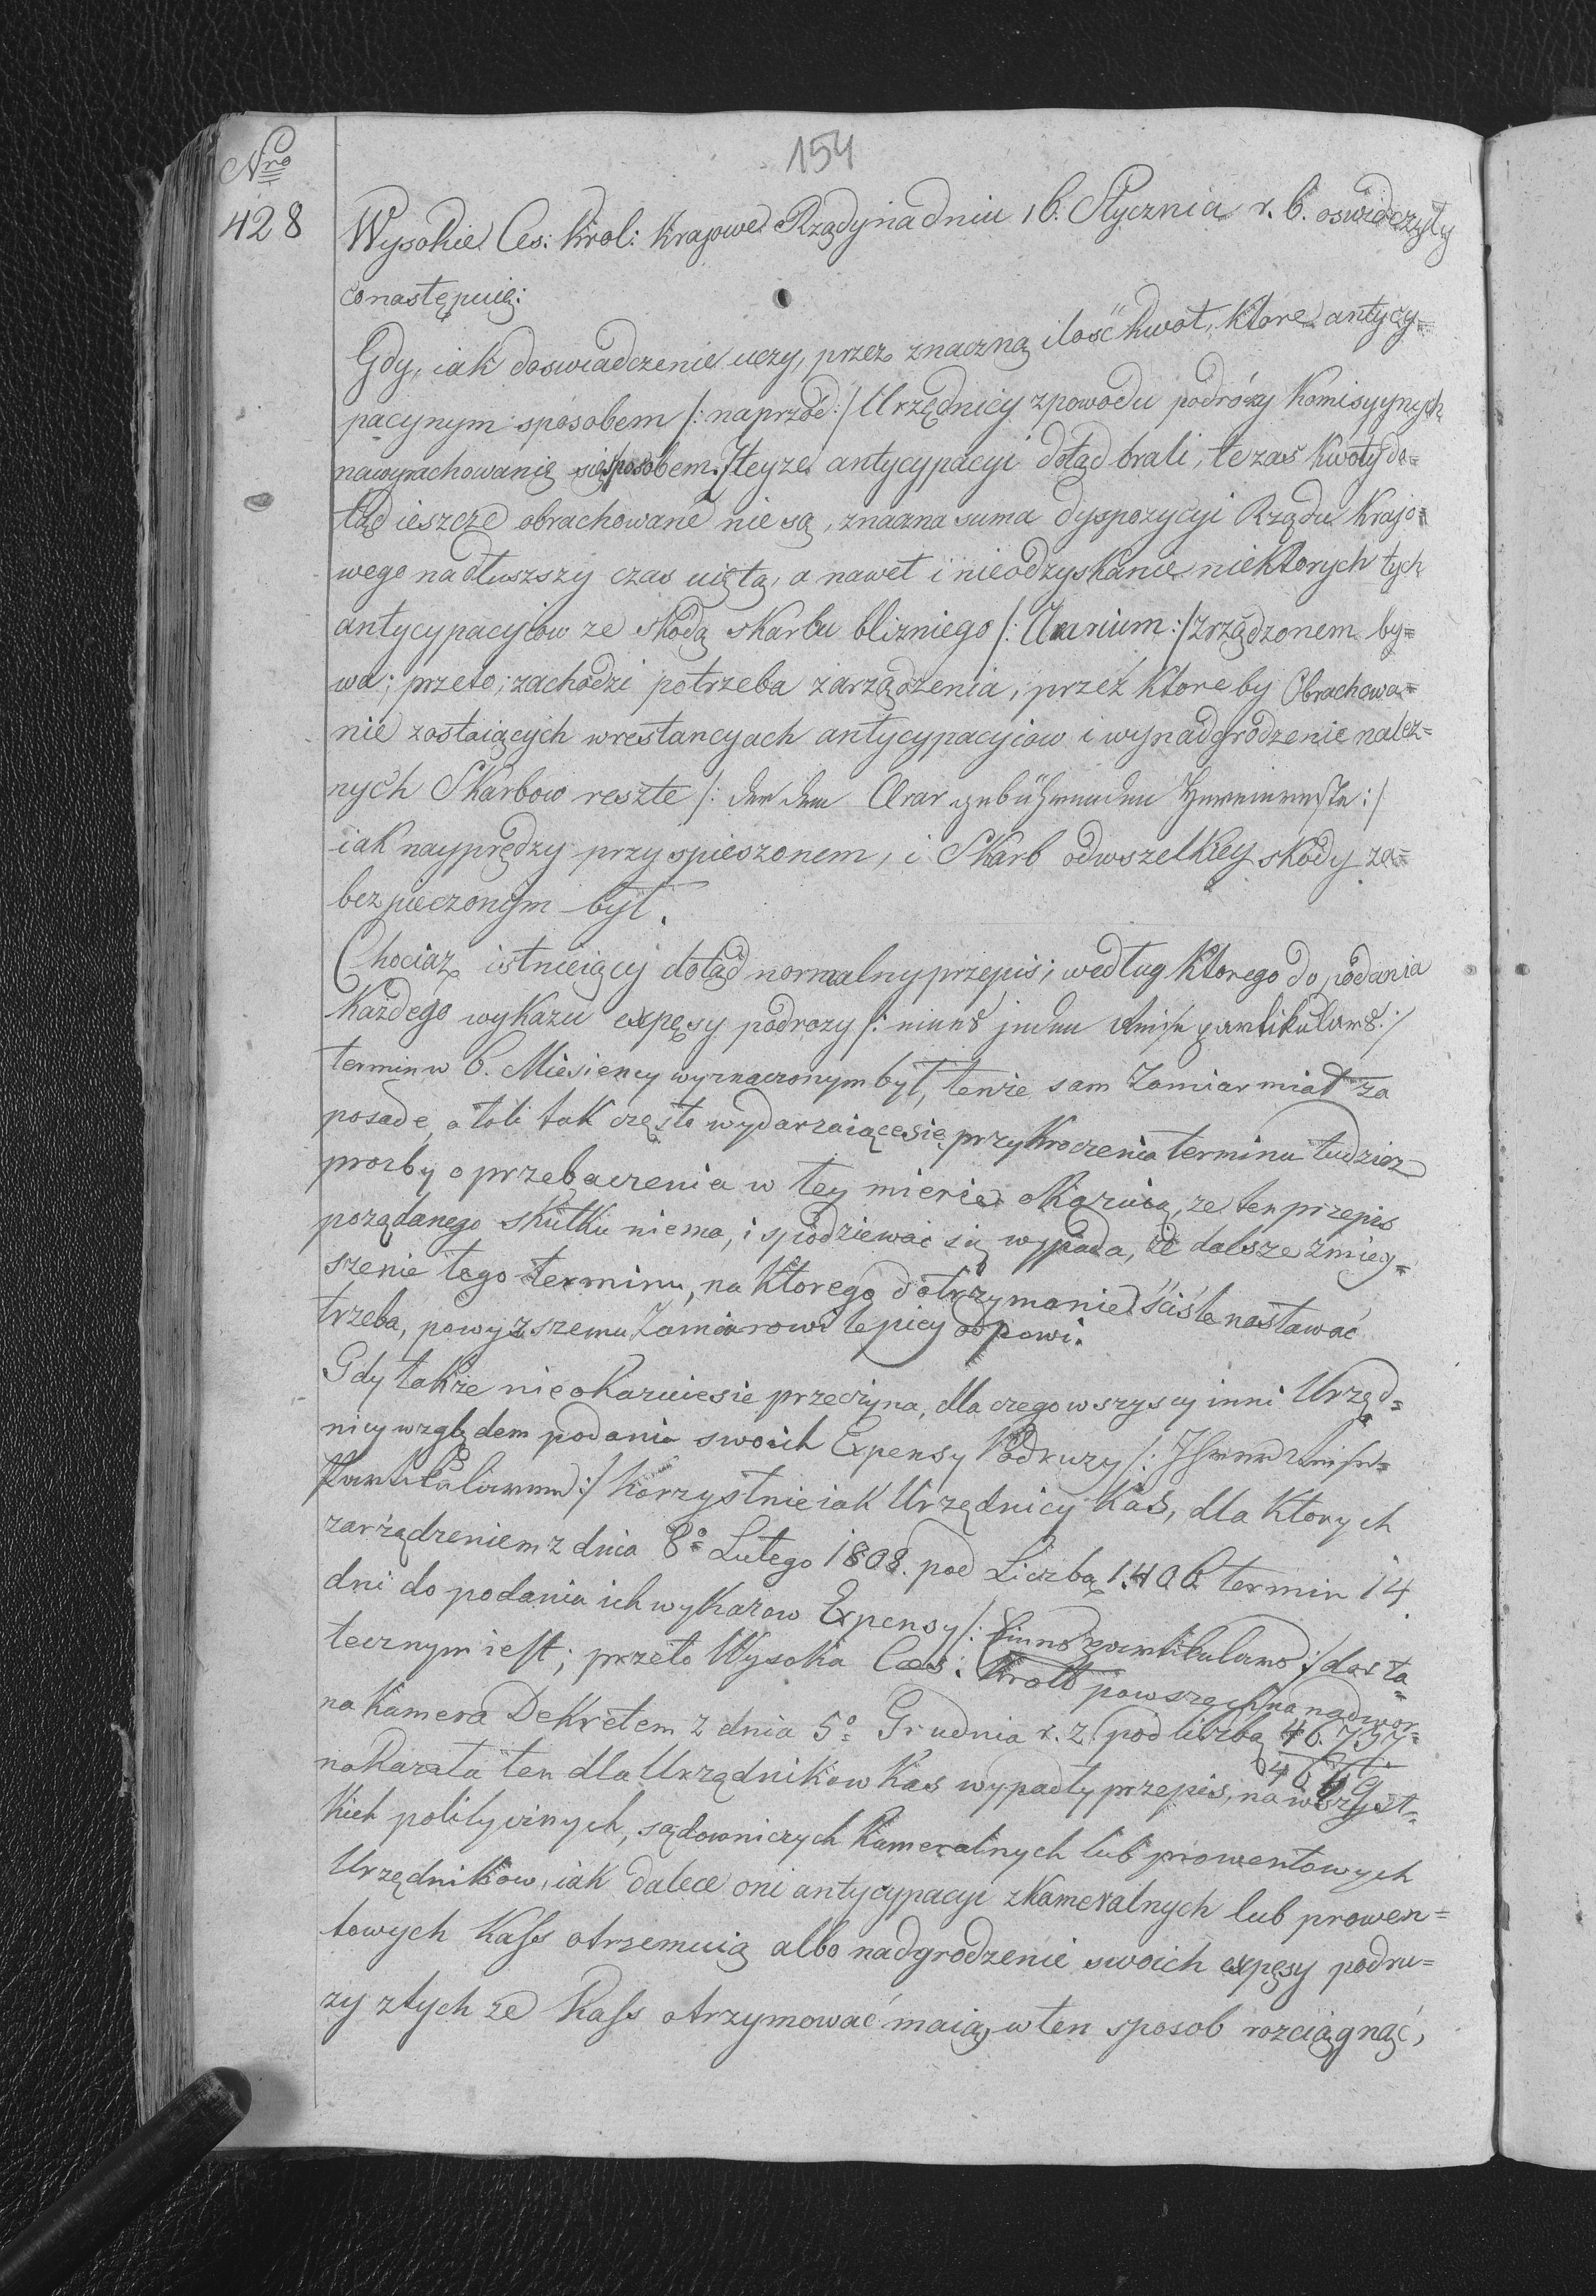 154
Nro
428
Wysokie Ces: Krol: Krajowe Rządy na dniu 16. Stycznia r. b. oswiadczyły
co następuię:
Gdy, iak doswiadczenie uczy, przez znaczną ilosć kwot, ktore antycy=
pacyinym sposobem /: naprzód :/ Urzędnicy z powodu podróży Komisyynych
na wyrachowanię się sposobem teyże antycypacyi dotąd brali, te zaś kwoty do=
tąd ieszcze obrachowane nie są, znaczna suma dyspozycyi Rządu Krajo=
wego na dłuszszy czas uięta, a nawet i nieodzyskanie niektorych tych
antycypacyiow ze skodą skarbu blizniego /: Ærarium :/ zrządzonem by=
wa; przeto; zachodzi potrzeba zarządzenia, przez ktore by Obrachowa=
nie zostaiących w restancyach antycypacyiow i wynadgrodzenie nalez=
nych Skarbow reszte /: der dem Ærar gebührenden :/
iak nayprędzy przyspieszonem, i Skarb od wszelkiey skody za=
bezpieczonym był.
Chociaż istnieiący dotąd normalny przepis; według ktorego do podania
Każdego wykazu expęsy podrozy /: eines jeden Reise partikulars :/
termin w 6. Miesiency wyznaczonym był, tenże sam Zamiar miał za
posadę, a toli tak często wydarzaiące się przykroczenia terminu tudzież
prozby o przebaczenia w tey mierie okazuią, ze ten przepis
pożądanego skutku niema, i spodziewać się wypada, że dalsze zmiey=
szenie tego terminu, na ktorego dotrzymanie ściśle nastawać
trzeba, powyzszemu Zamiarowi lepiey odpowi.
Gdy także nie okazuie sie przeciyna, dla czego wszyscy inni Urzęd=
nicy względem podania swoich Expensy Podruzy /: Ihrer Reise=
Partikularien :/ korzystnie iak Urzędnicy Kas, dla ktorych
zarządzeniem z dnia 8o Lutego 1808. pod Liczbą 1406 termin 14
dni do podania ich wykazow Expensy /: Reise partikulars :/ dosta=
tecznym iest; przeto Wysoka Ces: Krol: powszechna nadwor=
na Kamera Dekretem z dnia 5o Grudnia r. z. pod liczbą 46.737
4669
nakazała ten dla Urzędnikow Kas wypadły przepis, na wszyst=
kich politycznych, sądowniczych Kameralnych lub prowentowych
Urzędnikow, iak dalece oni antycypacye z Kameralnych lub prowen=
towych Kass otrzemuią albo nadgrodzenie swoich expęsy podru=
zy z tych ze Kass otrzymować maią, w ten sposob rozciągnąć,